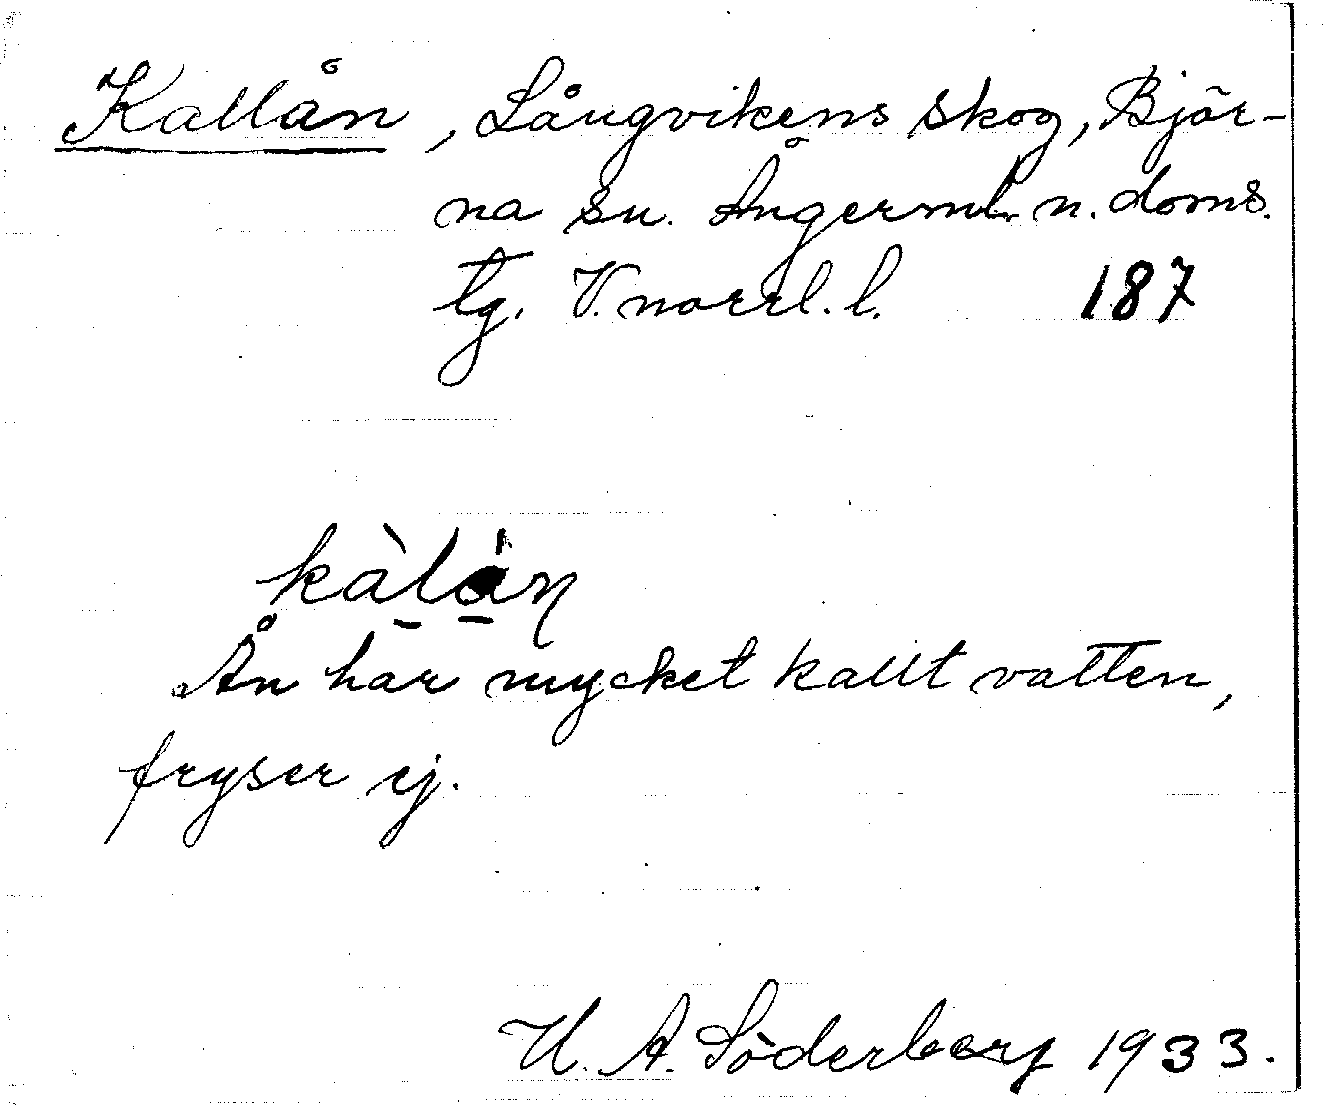 Kallån, Långvikens skog, Björ-
na sn. Ångerml. n. doms.
tg. V.norrl. l. 187
kàlån
Ån har mycket kallt vatten,
fryser ej.
H. A. Söderberg 1933.